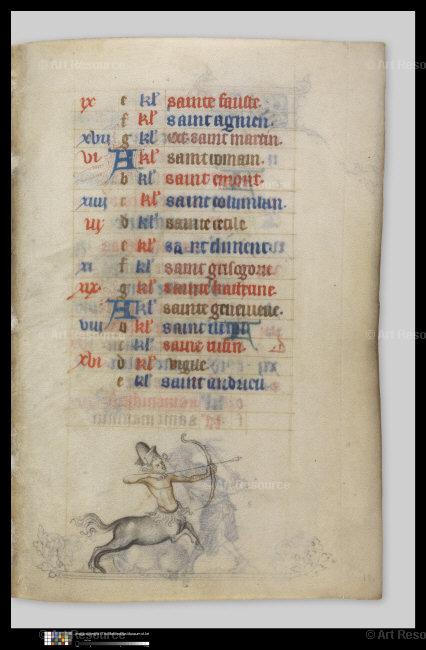 © Art Resource © Art Resource
ix e kl' sainte fauste.
f kl' saint agnien.
xvii g kl' oct saint martin.
vi A kl' saint romain.
b kl' saint emont.
xiiii c kl' saint columban.
iii d kl' sainte cecile.
e kl' saint climent.
xi f kl' saint grisogone
xix g kl' sainte katerine.
A kl' sainte genevieve.
viii b kl' saint
c kl' saint
xvi d kl' vigile.
e kl' saint andrieu
© Art Resource © Art Resource
© Art Resource
© Art Resource © Art Resource